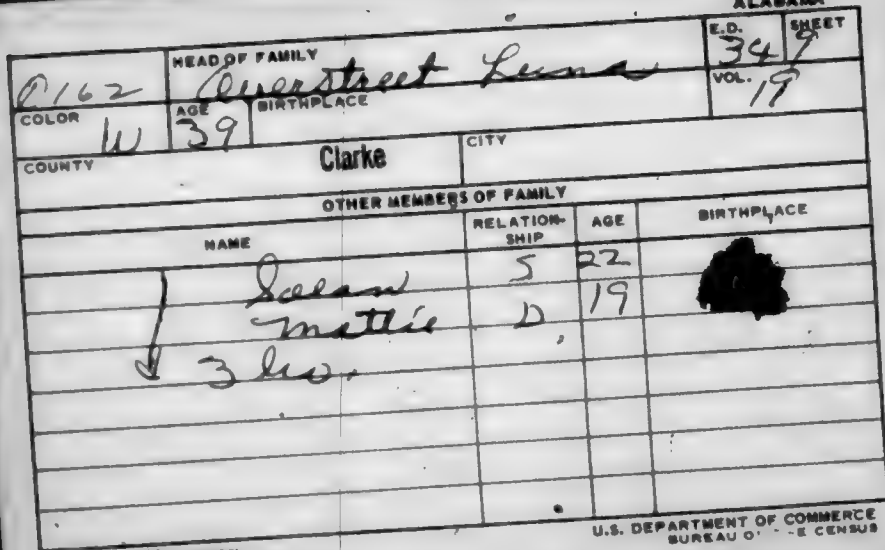 ALABAMA
HEAD OF FAMILY
E.D. 34
SHEET 9
O162
Overstreet Luna
VOL. 19
COLOR W
AGE 39
BIRTHPLACE
COUNTY Clarke
CITY
OTHER MEMBERS OF FAMILY
NAME
RELATION-
SHIP
AGE
BIRTHPLACE
S 22
Mattie D 19
3
U.S. DEPARTMENT OF COMMERCE
BUREAU
CENSUS